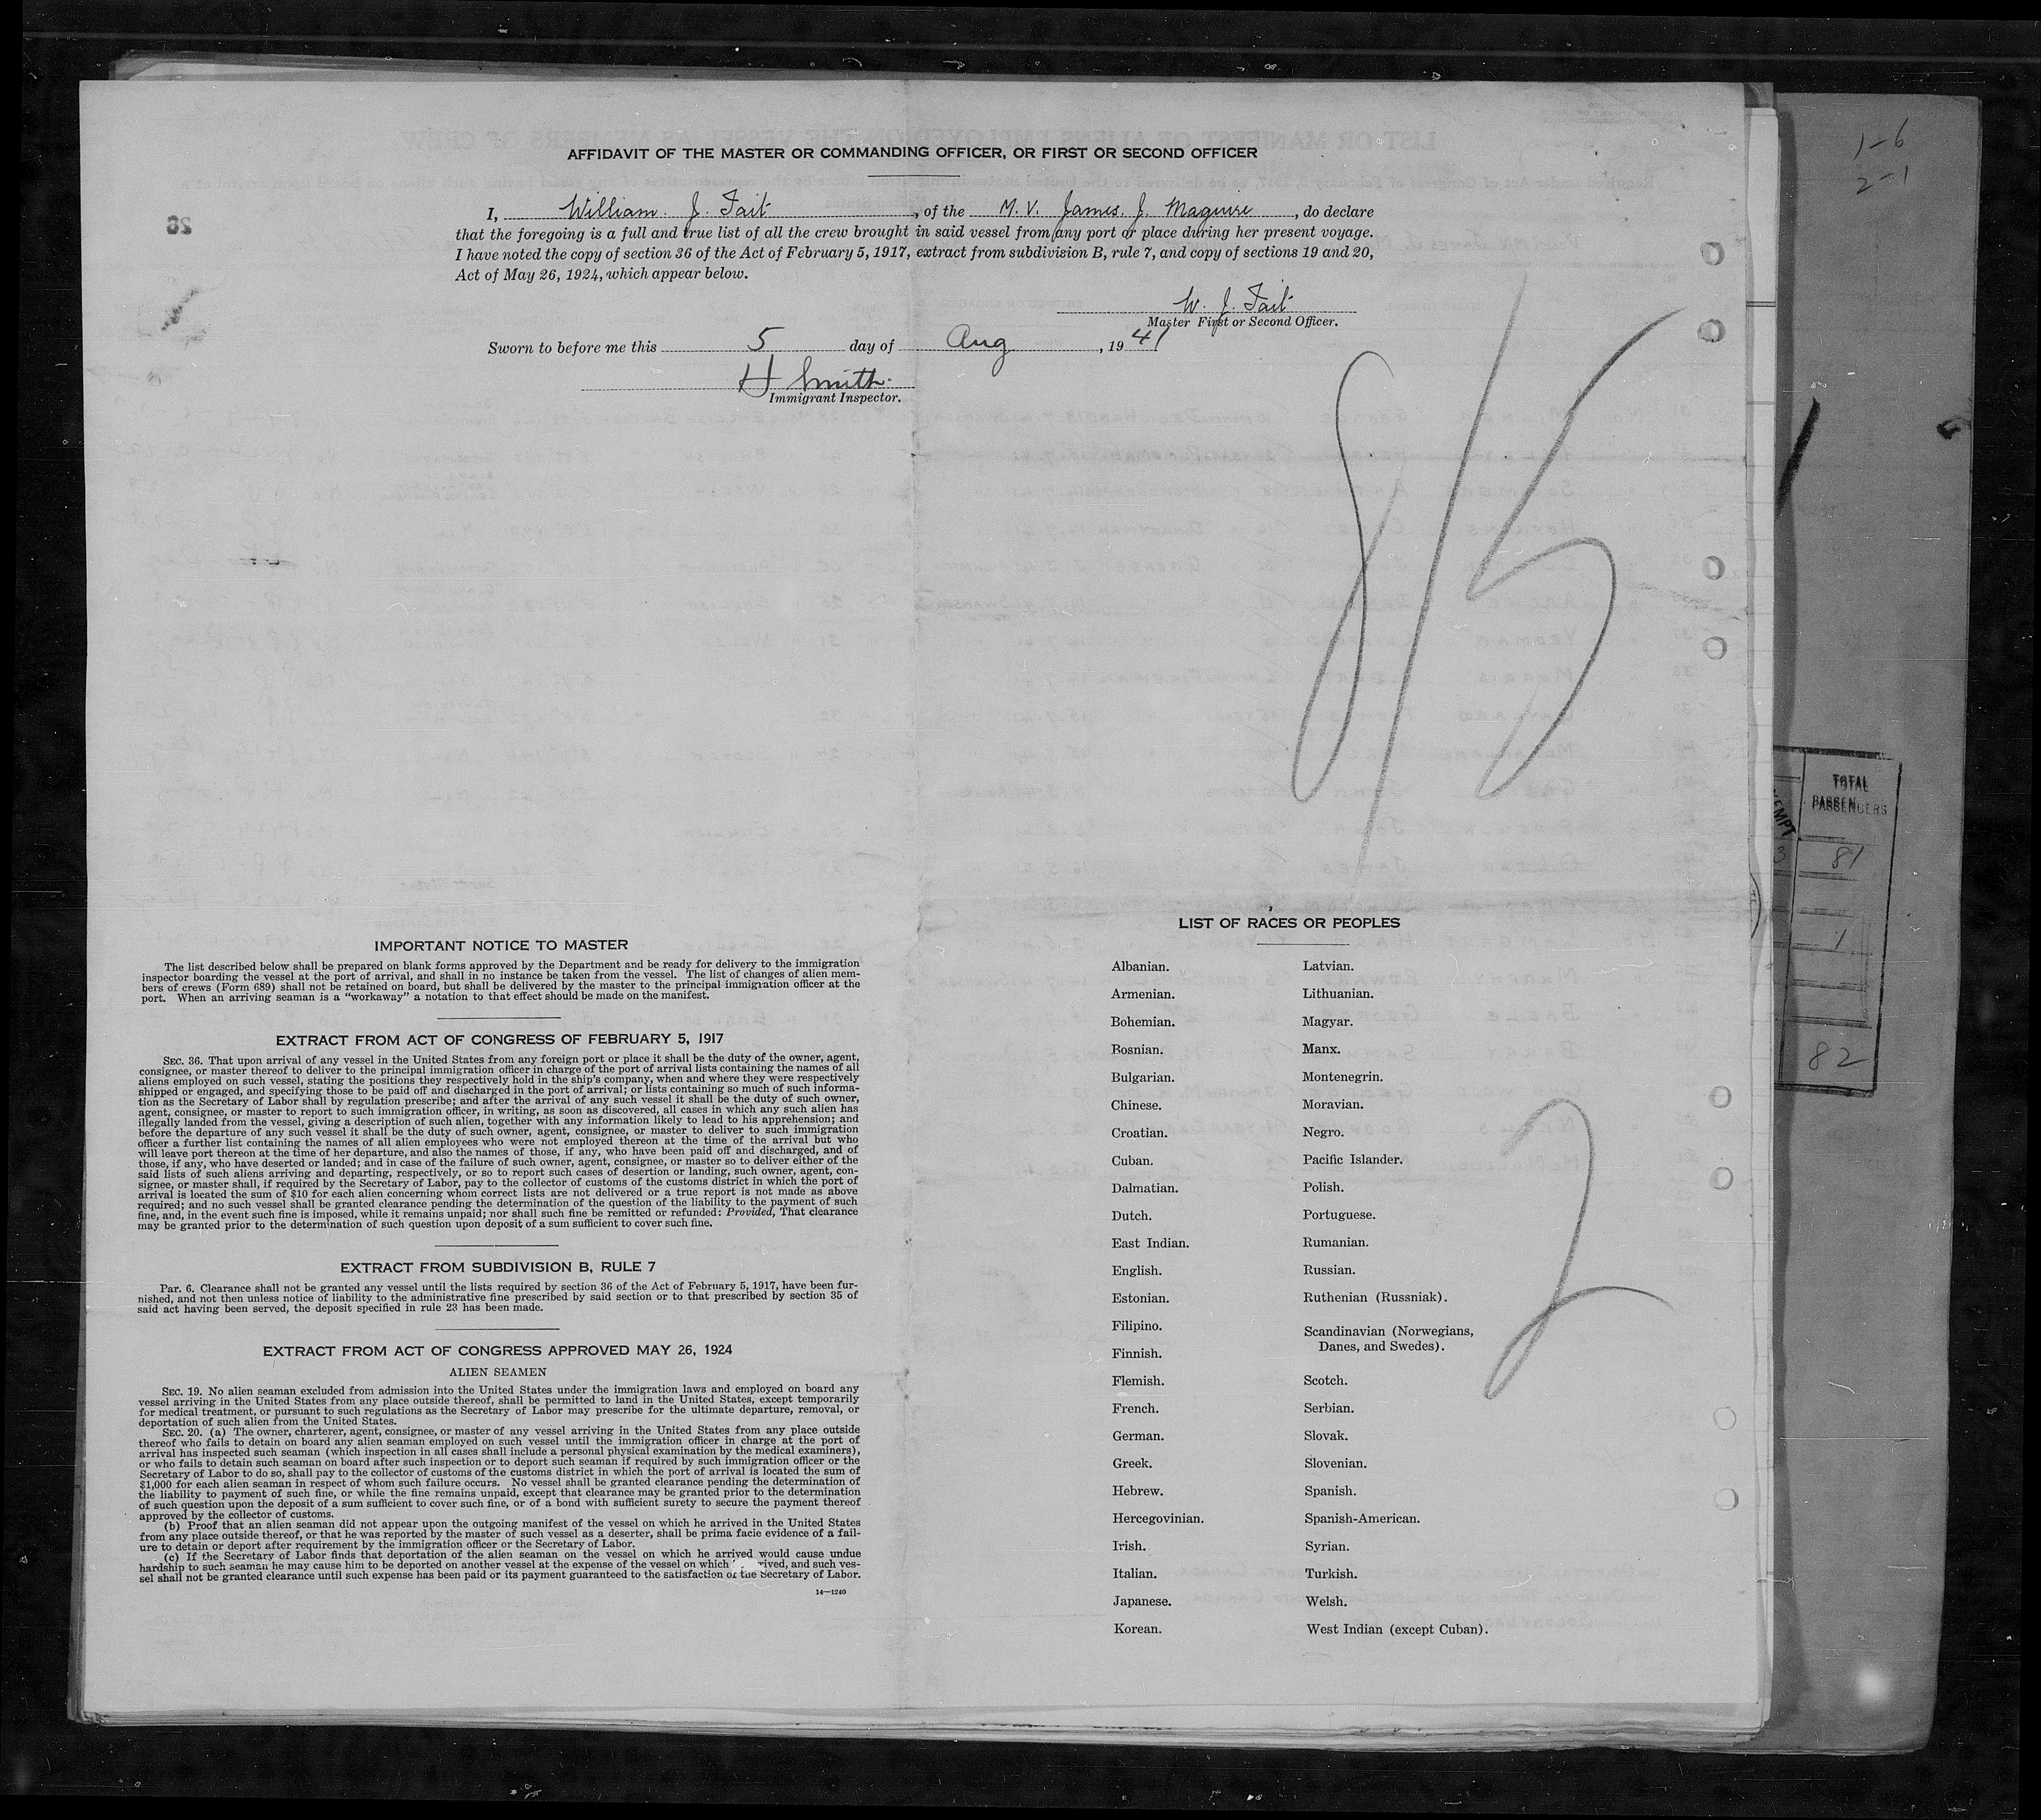 AFFIDAVIT OF THE MASTER OR COMMANDING OFFICER, OR FIRST OR SECOND OFFICER
I, William. J. Tait, of the M. V. James. J. Maguire, do declare
that the foregoing is a full and true list of all the crew brought in said vessel from any port or place during her present voyage.
I have noted the copy of section 36 of the Act of February 5, 1917, extract from subdivision B, rule 7, and copy of sections 19 and 20,
Act of May 26, 1924, which appear below.
W. J. Tait
Master First or Second Officer.
Sworn to before me this 5 day of Aug, 1941
H Smith.
Immigrant Inspector.
8/5
IMPORTANT NOTICE TO MASTER
The list described below shall be prepared on blank forms approved by the Department and be ready for delivery to the immigration
inspector boarding the vessel at the port of arrival, and shall in no instance be taken from the vessel. The list of changes of alien mem-
bers of crews (Form 689) shall not be retained on board, but shall be delivered by the master to the principal immigration officer at the
port. When an arriving seaman is a "workaway" a notation to that effect should be made on the manifest.
EXTRACT FROM ACT OF CONGRESS OF FEBRUARY 5, 1917
SEC. 36. That upon arrival of any vessel in the United States from any foreign port or place it shall be the duty of the owner, agent,
consignee, or master thereof to deliver to the principal immigration officer in charge of the port of arrival lists containing the names of all
aliens employed on such vessel, stating the positions they respectively hold in the ship's company, when and where they were respectively
shipped or engaged, and specifying those to be paid off and discharged in the port of arrival; or lists containing so much of such informa-
tion as the Secretary of Labor shall by regulation prescribe; and after the arrival of any such vessel it shall be the duty of such owner,
agent, consignee, or master to report to such immigration officer, in writing, as soon as discovered, all cases in which any such alien has
illegally landed from the vessel, giving a description of such alien, together with any information likely to lead to his apprehension; and
before the departure of any such vessel it shall be the duty of such owner, agent, consignee, or master to deliver to such immigration
officer a further list containing the names of all alien employees who were not employed thereon at the time of the arrival but who
will leave port thereon at the time of her departure, and also the names of those, if any, who have been paid off and discharged, and of
those, if any, who have deserted or landed; and in case of the failure of such owner, agent, consignee, or master so to deliver either of the
said lists of such aliens arriving and departing, respectively, or so to report such cases of desertion or landing, such owner, agent, con-
signee, or master shall, if required by the Secretary of Labor, pay to the collector of customs of the customs district in which the port of
arrival is located the sum of $10 for each alien concerning whom correct lists are not delivered or a true report is not made as above
required; and no such vessel shall be granted clearance pending the determination of the question of the liability to the payment of such
fine, and, in the event such fine is imposed, while it remains unpaid; nor shall such fine be remitted or refunded: Provided, That clearance
may be granted prior to the determination of such question upon deposit of a sum sufficient to cover such fine.
EXTRACT FROM SUBDIVISION B, RULE 7
Par. 6. Clearance shall not be granted any vessel until the lists required by section 36 of the Act of February 5, 1917, have been fur-
nished, and not then unless notice of liability to the administrative fine prescribed by said section or to that prescribed by section 35 of
said act having been served, the deposit specified in rule 23 has been made.
EXTRACT FROM ACT OF CONGRESS APPROVED MAY 26, 1924
ALIEN SEAMEN
SEC. 19. No alien seaman excluded from admission into the United States under the immigration laws and employed on board any
vessel arriving in the United States from any place outside thereof, shall be permitted to land in the United States, except temporarily
for medical treatment, or pursuant to such regulations as the Secretary of Labor may prescribe for the ultimate departure, removal, or
deportation of such alien from the United States.
SEC. 20. (a) The owner, charterer, agent, consignee, or master of any vessel arriving in the United States from any place outside
thereof who fails to detain on board any alien seaman employed on such vessel until the immigration officer in charge at the port of
arrival has inspected such seaman (which inspection in all cases shall include a personal physical examination by the medical examiners),
or who fails to detain such seaman on board after such inspection or to deport such seaman if required by such immigration officer or the
Secretary of Labor to do so, shall pay to the collector of customs of the customs district in which the port of arrival is located the sum of
$1,000 for each alien seaman in respect of whom such failure occurs. No vessel shall be granted clearance pending the determination of
the liability to payment of such fine, or while the fine remains unpaid, except that clearance may be granted prior to the determination
of such question upon the deposit of a sum sufficient to cover such fine, or of a bond with sufficient surety to secure the payment thereof
approved by the collector of customs.
(b) Proof that an alien seaman did not appear upon the outgoing manifest of the vessel on which he arrived in the United States
from any place outside thereof, or that he was reported by the master of such vessel as a deserter, shall be prima facie evidence of a fail-
ure to detain or deport after requirement by the immigration officer or the Secretary of Labor.
(c) If the Secretary of Labor finds that deportation of the alien seaman on the vessel on which he arrived would cause undue
hardship to such seaman he may cause him to be deported on another vessel at the expense of the vessel on which rived, and such ves-
sel shall not be granted clearance until such expense has been paid or its payment guaranteed to the satisfaction of the Secretary of Labor.
14—1240
LIST OF RACES OR PEOPLES
Albanian.
Armenian.
Bohemian.
Bosnian.
Bulgarian.
Chinese.
Croatian.
Cuban.
Dalmatian.
Dutch.
East Indian.
English.
Estonian.
Filipino.
Finnish.
Flemish.
French.
German.
Greek.
Hebrew.
Hercegovinian.
Irish.
Italian.
Japanese.
Korean.
Latvian.
Lithuanian.
Magyar.
Manx.
Montenegrin.
Moravian.
Negro.
Pacific Islander.
Polish.
Portuguese.
Rumanian.
Russian.
Ruthenian (Russniak).
Scandinavian (Norwegians,
Danes, and Swedes).
Scotch.
Serbian.
Slovak.
Slovenian.
Spanish.
Spanish-American.
Syrian.
Turkish.
Welsh.
West Indian (except Cuban).
2
1-6
2-1
TOTAL
PASSENGERS
3 81
1
82